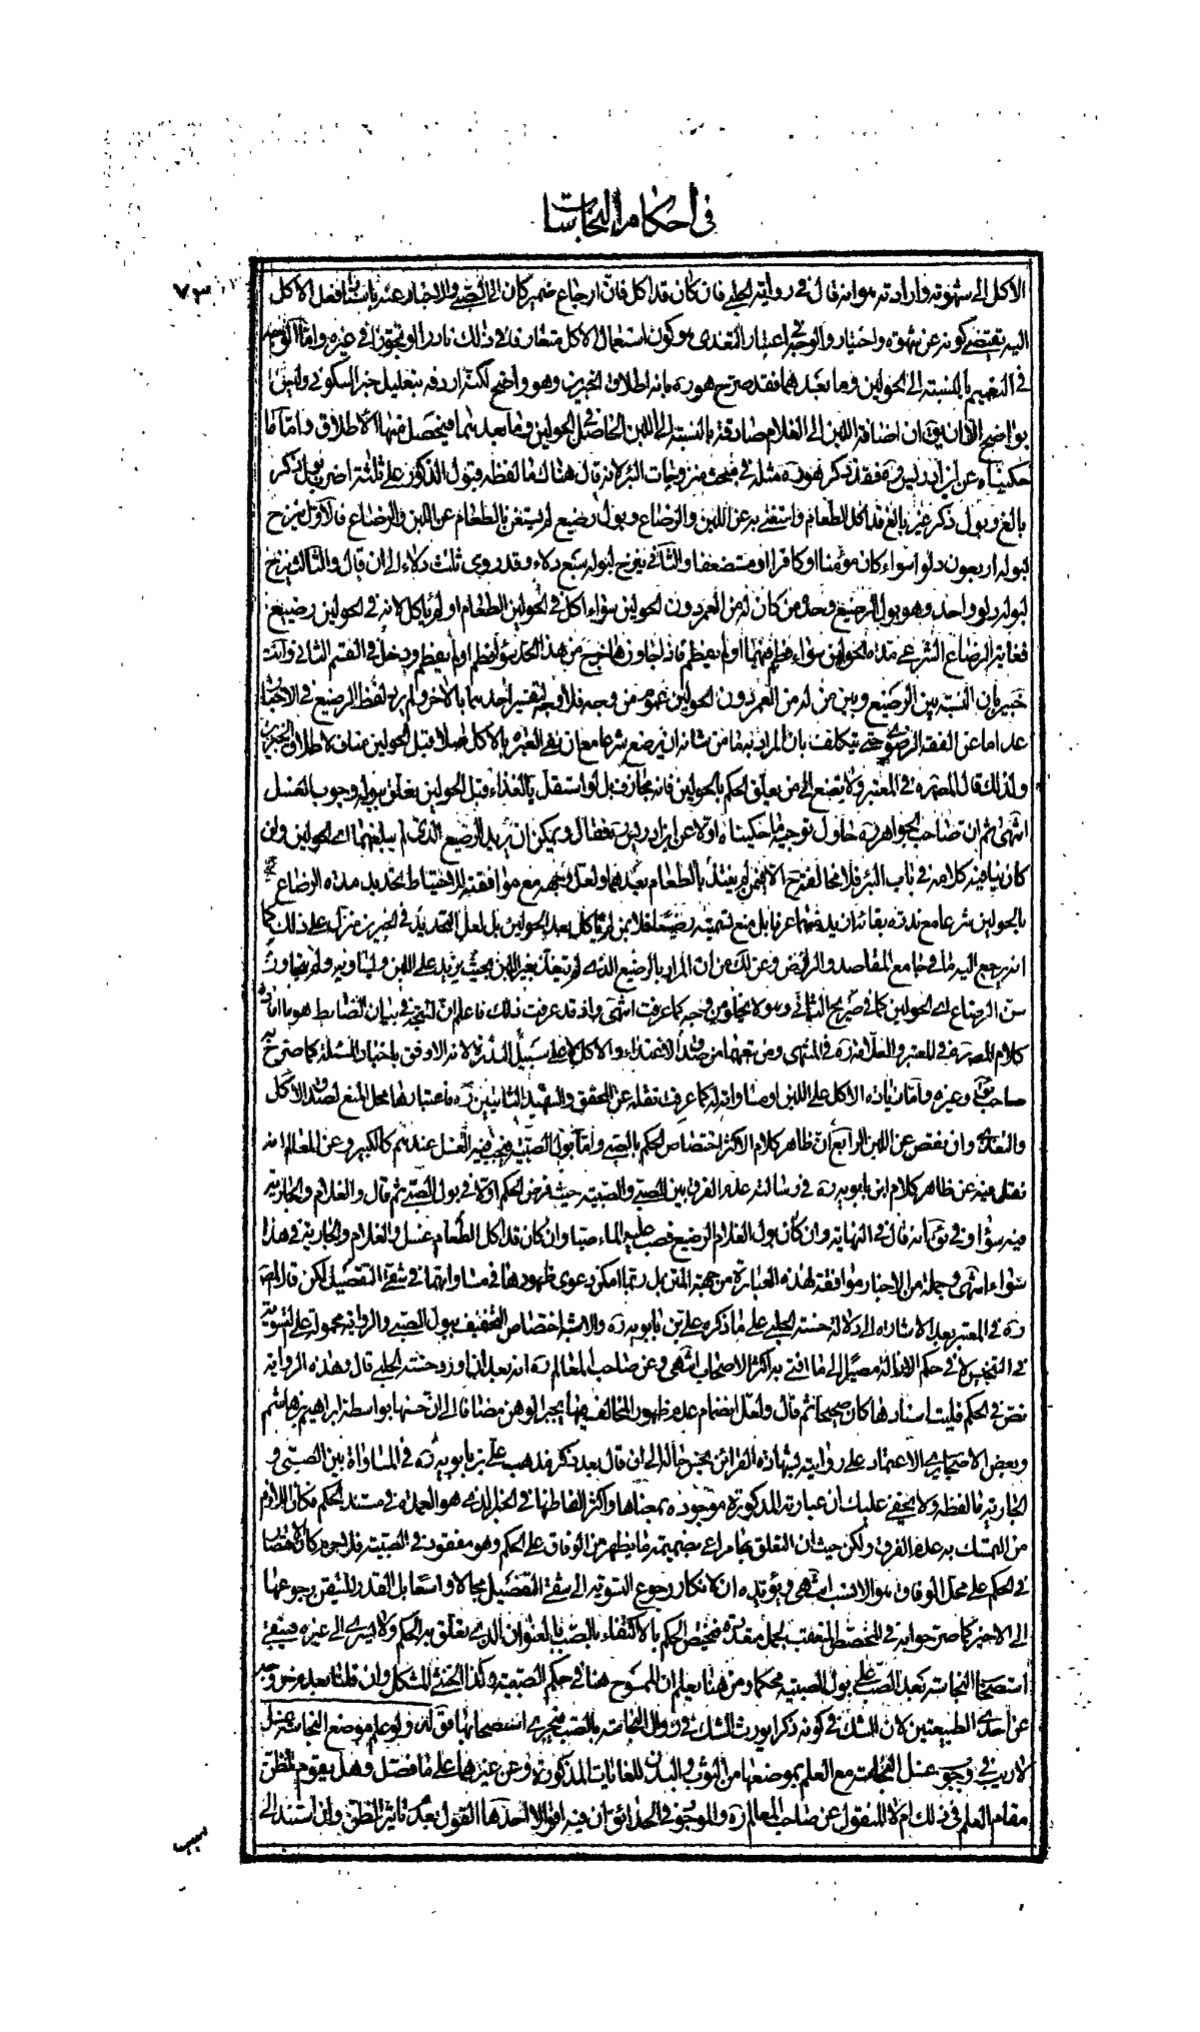 في أحكام النجاسات
٧٣
الاكل الى شهوته وارادته هو انه قال في رواية الحلبي فان كان قد اكل فان ارجاع ضمير كان الى الصبي والاخبار عنه باستناد فعل الاكل
اليه يقتضي كونه عن شهوة واختيار والوجه في اعتبار التغذي هو كون استعمال الاكل متعارفا في ذلك نادرا او تجوزا في غيره واما الوجه
في التعميم بالنسبة الى الحولين وما بعدهما فقد صرح هو ره بانه اطلاق الخبرين وهو واضح لكنه اردفه بتعليل خبر السكوني وليس
بواضح الا ان يق ان اضافة اللبن الى الغلام صادقة بالنسبة الى اللبن الحاصل في الحولين وما بعدهما فيتحصل منها الاطلاق واما ما
حكيناه عن ابن ادريس ره فقد ذكر هو ره مثله في مبحث منزوحات البئر لانه قال هناك ما لفظه وبول الذكور على ثلثة اضرب بول ذكر
بالغ وبول ذكر غير بالغ قد اكل الطعام واستغنى به عن اللبن والرضاع وبول رضيع لم يستغن بالطعام عن اللبن والرضاع فالاول ينزح
لبوله اربعون دلوا سواء كان مؤمنا او كافرا او مستضعفا والثاني ينزح لبوله سبع دلاء وقد روى ثلث دلاء الى ان قال والثالث ينزح
لبوله دلو واحد وهو بول الرضيع وحده من كان له من العمر دون الحولين سواء اكل في الحولين الطعام او لم ياكل لانه في الحولين رضيع
فغاية الرضاع الشرعي مدة الحولين سواء فطم فيهما او لم يفطم فاذا جاوزها خرج من هذا الحد سواء فطم او لم يفطم ودخل في القسم الثاني وانت
خبير بان النسبة بين الرضيع وبين من له من العمر دون الحولين عموم من وجه فلا وجه لتفسير احدهما بالاخر ولم يرد لفظ الرضيع في الاخبار
عدا ما عن الفقه الرضوي حتى يتكلف بان المراد به من شانه ان يرضع شرعا مع ان نفي العبرة بالاكل اصلا قبل الحولين مناف لاطلاق الخبرين
ولذلك قال المصره في المعتبر ولا يصغ الى من يعلق الحكم بالحولين فانه مجازف بل لو استقل بالغذاء قبل الحولين تعلق ببوله وجوب الغسل
انتهى ثم ان صاحب الجواهر ره حاول توجيه ما حكيناه اولا عن ابن ادريس ره فقال ويمكن ان يريد بالرضيع الذي لم يبلغهما اي الحولين وان
كان ينافيه كلامه في باب البئر فلا مخالفة ح الا فيمن لم يغتذ بالطعام بعدهما ولعل وجهه مع موافقته للاحتياط تحديد مدة الرضاع
بالحولين شرعا مع ندرة بقائه ان يد ضهما عرفا بل منع تسميته رضيعا فلا بن لم ياكل بعد الحولين بل لعل التحديد في الخبرين منزل على ذلك كما
انه يرجع اليه ما في جامع المقاصد والرياض وغير ذلك من ان المراد بالرضيع الذي لم يتغذ بغير اللبن بحيث يزيد على اللبن او يساويه ولم يتجاوز
سن الرضاع اي الحولين كما في صريح الثاني وهو لا يخلو من وجه كما عرفت انتهى واذ قد عرفت ذلك فاعلم ان المتجه في بيان الضابط هو ما افاده
كلام المصره في المعتبر والعلامة ره في المنتهى ومن تبعهما من صدق الاغتذاء والاكل لا على سبيل الندرة لانه الاوفق باخبار المسئلة كما صرح به
صاحب ئق وغيره واما زيادة الاكل على اللبن او مساواته له كما عرفت نقله عن المحقق والشهيد الثانيين ره فاعتبارها محل المنع لصدق الاكل
والتغذي وان نقص عن اللبن الرابع ان ظاهر كلام الاكثر اختصاص الحكم بالصبي واما بول الصبية فيجب فيه الغسل عندهم كالكبير وعن المعالم انه
نقل فيه عن ظاهر كلام ابن بابويه ره في رسالته عدم الفرق بين الصبي والصبية حيث فرض الحكم اولا في بول الصبي ثم قال والغلام والجارية
فيه سواء وفي ئق انه قال في النهاية وان كان بول الغلام الرضيع فصب عليه الماء صبا وان كان قد اكل الطعام غسل والغلام والجارية في هذا
سواء انتهى وجملة من الاخبار موافقة لهذه العبارة من جهة المتن بل ربما امكن دعوى ظهورها في مساواتهما في شقي التفصيل لكن قال المص
ره في المعتبر بعد الاشارة الى دلالة حسنة الحلبي على ما ذكره علي بن بابويه ره والاشبه اختصاص التخفيف ببول الصبي والرواية محمولة على التسوية
في التنجيس لا في حكم الازالة مصيرا الى ما افتى به اكثر الاصحاب انتهى وعن صاحب المعالم ره انه بعد ان اورد حسنة الحلبي قال وهذه الرواية
نص في الحكم فليت اسنادها كان صحيحا ثم قال ولعل انضمام عدم ظهور المخالف فيها يجبر الوهن مضافا الى ان حسنها بواسطة ابراهيم بن هاشم
وبعض الاصحاب يرى الاعتماد على روايته لشهادة القرائن بحسن حاله الى ان قال بعد ذكر مذهب علي بن بابويه ره في المساواة بين الصبي و
الجارية ما لفظه ولا يخفى عليك ان عبارته المذكورة موجودة بمعناها واكثر الفاظها في الخبر الذي هو العمدة في مستند الحكم فكان اللازم
من التمسك به عدم الفرق ولكن حيث ان التعلق بها مراعى بضميمة ما يظهر من الوفاق على الحكم وهو مفقود في الصبية فلا جرم كان الاقتصار
في الحكم على محل الوفاق هو الانسب انتهى ويؤيده ان لانكار رجوع التسوية الى شقي التفصيل مجالا واسعا بل القدر المتيقن رجوعها
الى الاخير كما صرحوا به في المخصص المتعقب لجمل متعددة فيختص الحكم بالاكتفاء بالصب بالعنوان الذي تعلق به الحكم ولا يسرى الى غيره فيبقى
استصحاب النجاسة بعد الصب على بول الصبية محكما ومن هنا يعلم ان الممسوح هنا في حكم الصبية وكذا الخنثى المشكل وان قلنا بعد خروجه
عن احدى الطبيعتين لان الشك في كونه ذكرا يورث الشك في زوال النجاسة بالصب فيجري استصحابها قوله ولو علم موضع النجاسة غسل
لا ريب في وجوب غسل النجاسة مع العلم بموضعها من الثوب والبدن للغايات المذكورة وعن غيرهما على ما فصل وهل يقوم الظن
مقام العلم في ذلك ام لا المنقول عن صاحب المعالم ره والموجود في الحدائق ان فيه اقوالا احدها القول بعدم تاثير الظن وان استند الى
سبب